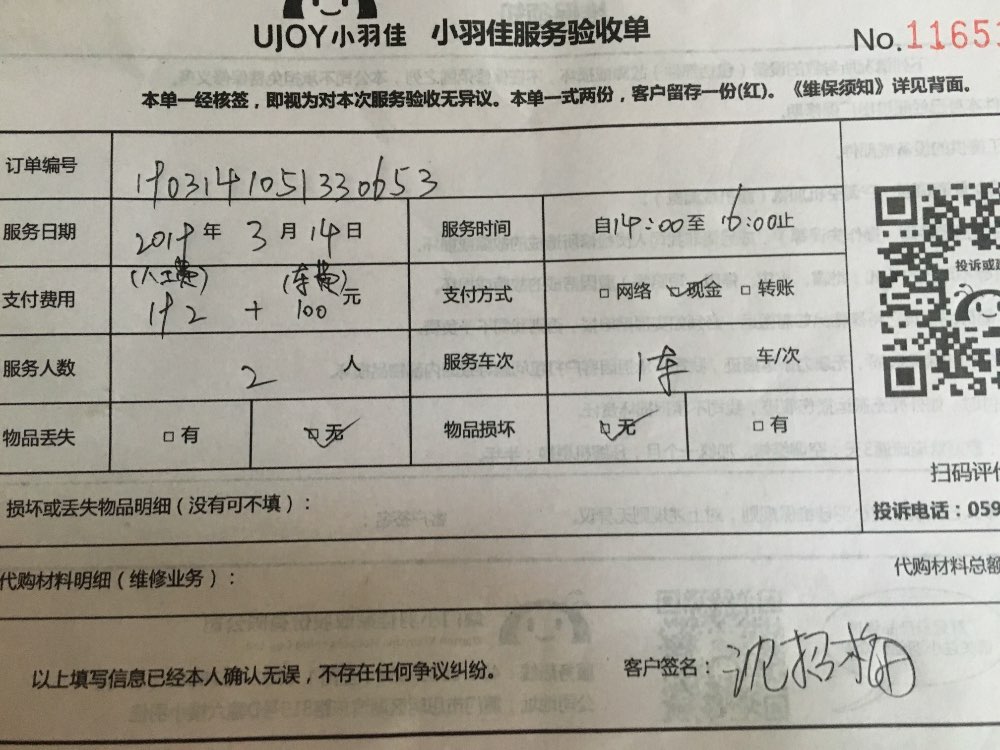 UJOY小羽佳 小羽佳服务验收单
No.11651
本单一经核签，即视为对本次服务验收无异议。本单一式两份，客户留存一份(红)。《维保须知》详见背面。
订单编号 190314051330653
服务日期 2019年3月14日 服务时间 自14:00至16:00止
(人工费) (车费)
支付费用 192 + 100元 支付方式 □网络 ☑现金 □转账
服务人数 2 人 服务车次 1车 车/次
物品丢失 □有 ☑无 物品损坏 ☑无 □有
投诉或
扫码评
损坏或丢失物品明细（没有可不填）：
投诉电话：059
代购材料明细（维修业务）：
代购材料总额
以上填写信息已经本人确认无误，不存在任何争议纠纷。 客户签名：沈招梅